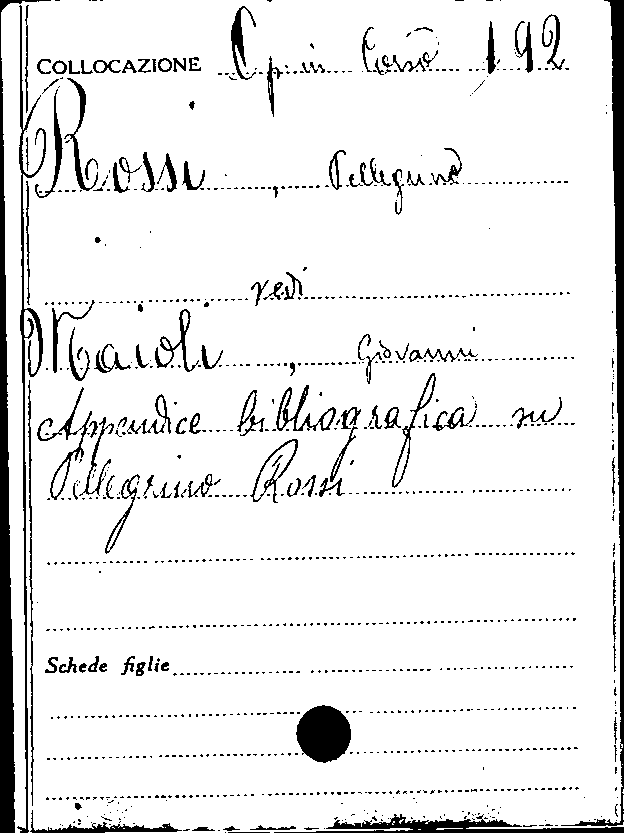 COLLOCAZIONE Op. in Corso 192
Rossi, Pellegrino
vedi
Maioli, Giovanni
Appendice bibliografica su
Pellegrino Rossi
Schede figlie